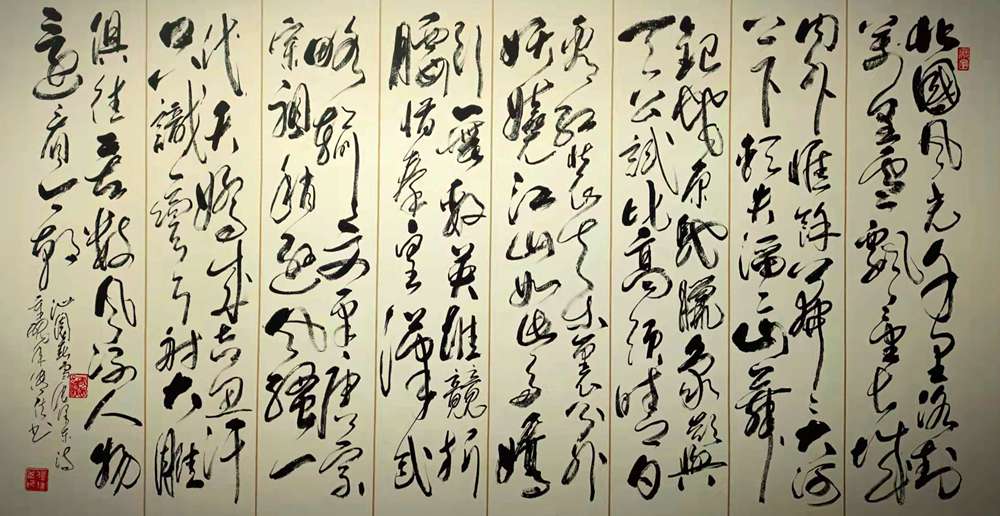 北國風光千里冰封
萬里雪飄望長城
内外惟餘莽々大河
上下頓失滔々山舞
銀蛇原馳臘象欲與
天公試比高須晴日
看紅裝素裹分外
妖嬈江山如此多嬌
引無數英雄競折
腰惜秦皇漢武
略輸文采唐宗
宋祖稍遜風騷一
代天驕成吉思汗
只識彎弓射大雕
俱往矣數風流人物
還看今朝
沁園春雪毛澤東詞